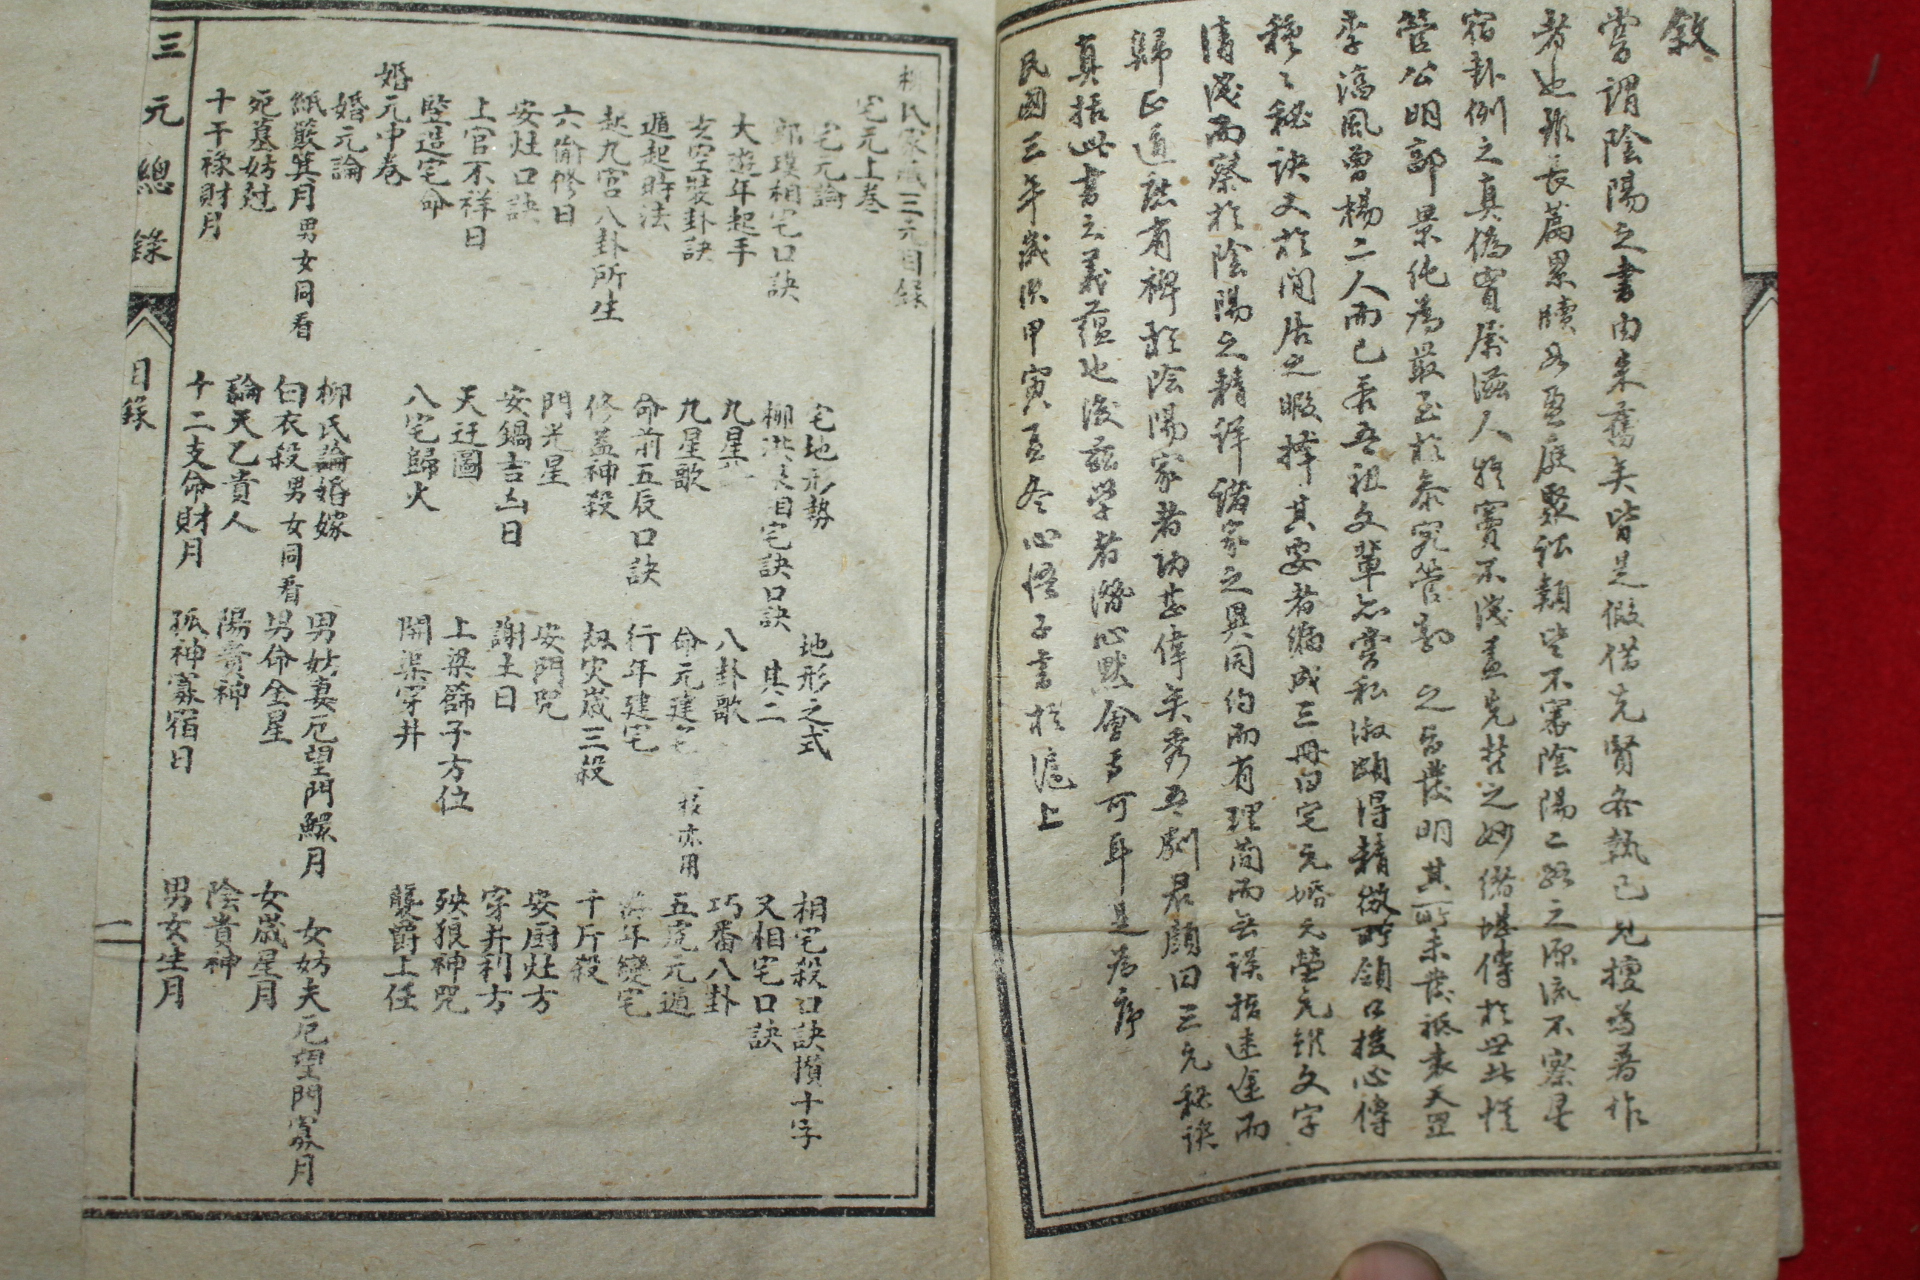 敘
嘗謂陰陽之書由來舊矣皆是假借先賢各執己見擅為著作
者也雖長篇累牘盈庭聚訟類皆不審陰陽二路之源流不察星
宿卦例之真偽實屬滋人疑竇不淺蓋先哲之妙緒堪傳於世此惟
管公明郭景純為最至於泰究管郭之旨發明其所未發祗袁天罡
李淳風曾楊二人而已若吾祖文輩亦嘗私淑頗得精微所領口授心傳
種之秘訣文於閒居之暇擇其要者編成三冊曰宅元婚元塋元雖文字
清淺而察於陰陽之精詳諸家之異同約而有理簡而無誤指迷途而
歸正道庶有裨於陰陽家者功甚偉矣秀五劂君顏曰三元秘訣
真括此書之義蘊也後茲學者潛心默會可耳是為序
民國三年歲次甲寅孟冬心悟子書於滬上
三元總錄
目錄
柳氏家藏三元目錄
宅元上卷
宅元論 宅地形勢 地形之式 相宅殺口訣攢十字
郭璞相宅口訣 柳洪泉相宅訣口訣 其二 又相宅口訣
大遊年起手 九星 八卦歌 巧番八卦
玄空裝卦訣 九星歌 命元建宅 五虎元遁
遁起時法 命前五辰口訣 行年建宅 年變宅
起九宮八卦所生 修蓋神殺 劫灾歲三殺 千斤殺
六偷修日 門光星 安門咒 安厨灶方
安灶口訣 安鍋吉凶日 謝土日 穿井利方
上官不祥日 天迁圖 上梁篩子方位 殃狼神咒
竪造宅命 八宅歸火 開渠穿井 襲爵上任
婚元中卷
婚元論 柳氏論婚嫁 男妨妻厄望門鰥月 女妨夫厄望門寡月
紙厫箕月男女同看 白衣殺男女同看 男命金星 女歲星月
宛墓妨过 論天乙貴人 陽貴神 陰貴神
十干祿財月 十二支命財月 孤神寡宿日 男女生月